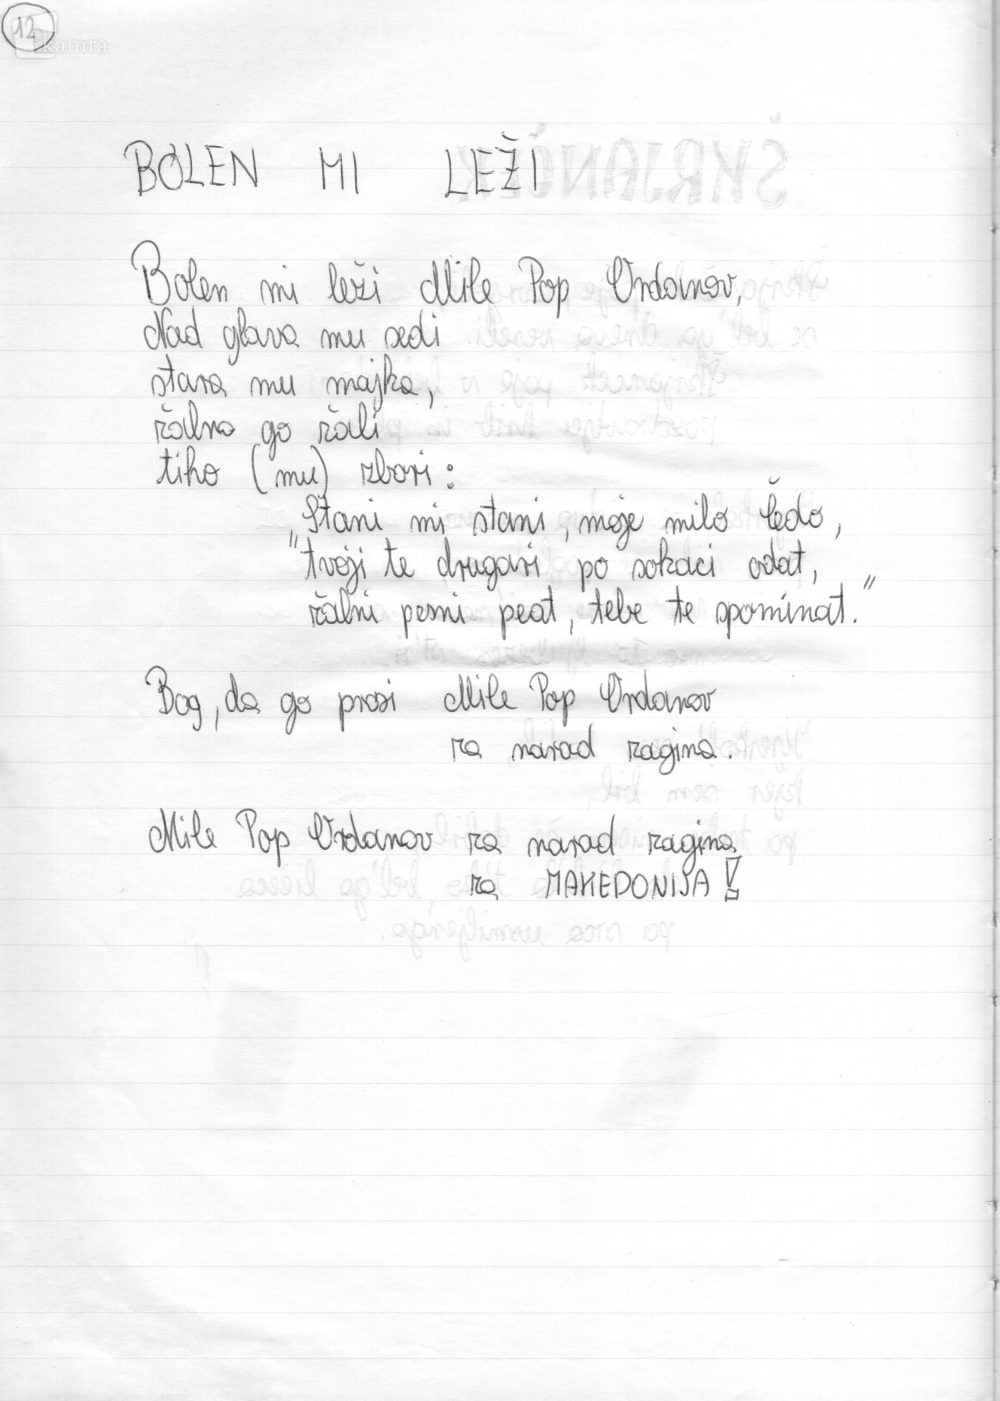 12
kamra
BOLEN MI LEŽI
Bolen mi leži Mile Pop Urdanov,
Nad glava mu sedi
stara mu majka,
žalno go žali
tiho (mu) zbori:
"Stani mi stani, moje milo čedo,
"tvoji te drugari po sokaci odat,
žalni pesni peat, tebe te spominat."
Bog, da go prosi Mile Pop Urdanov
za narod zagina.
Mile Pop Urdanov za narod zagina
za MAKEDONIJA!